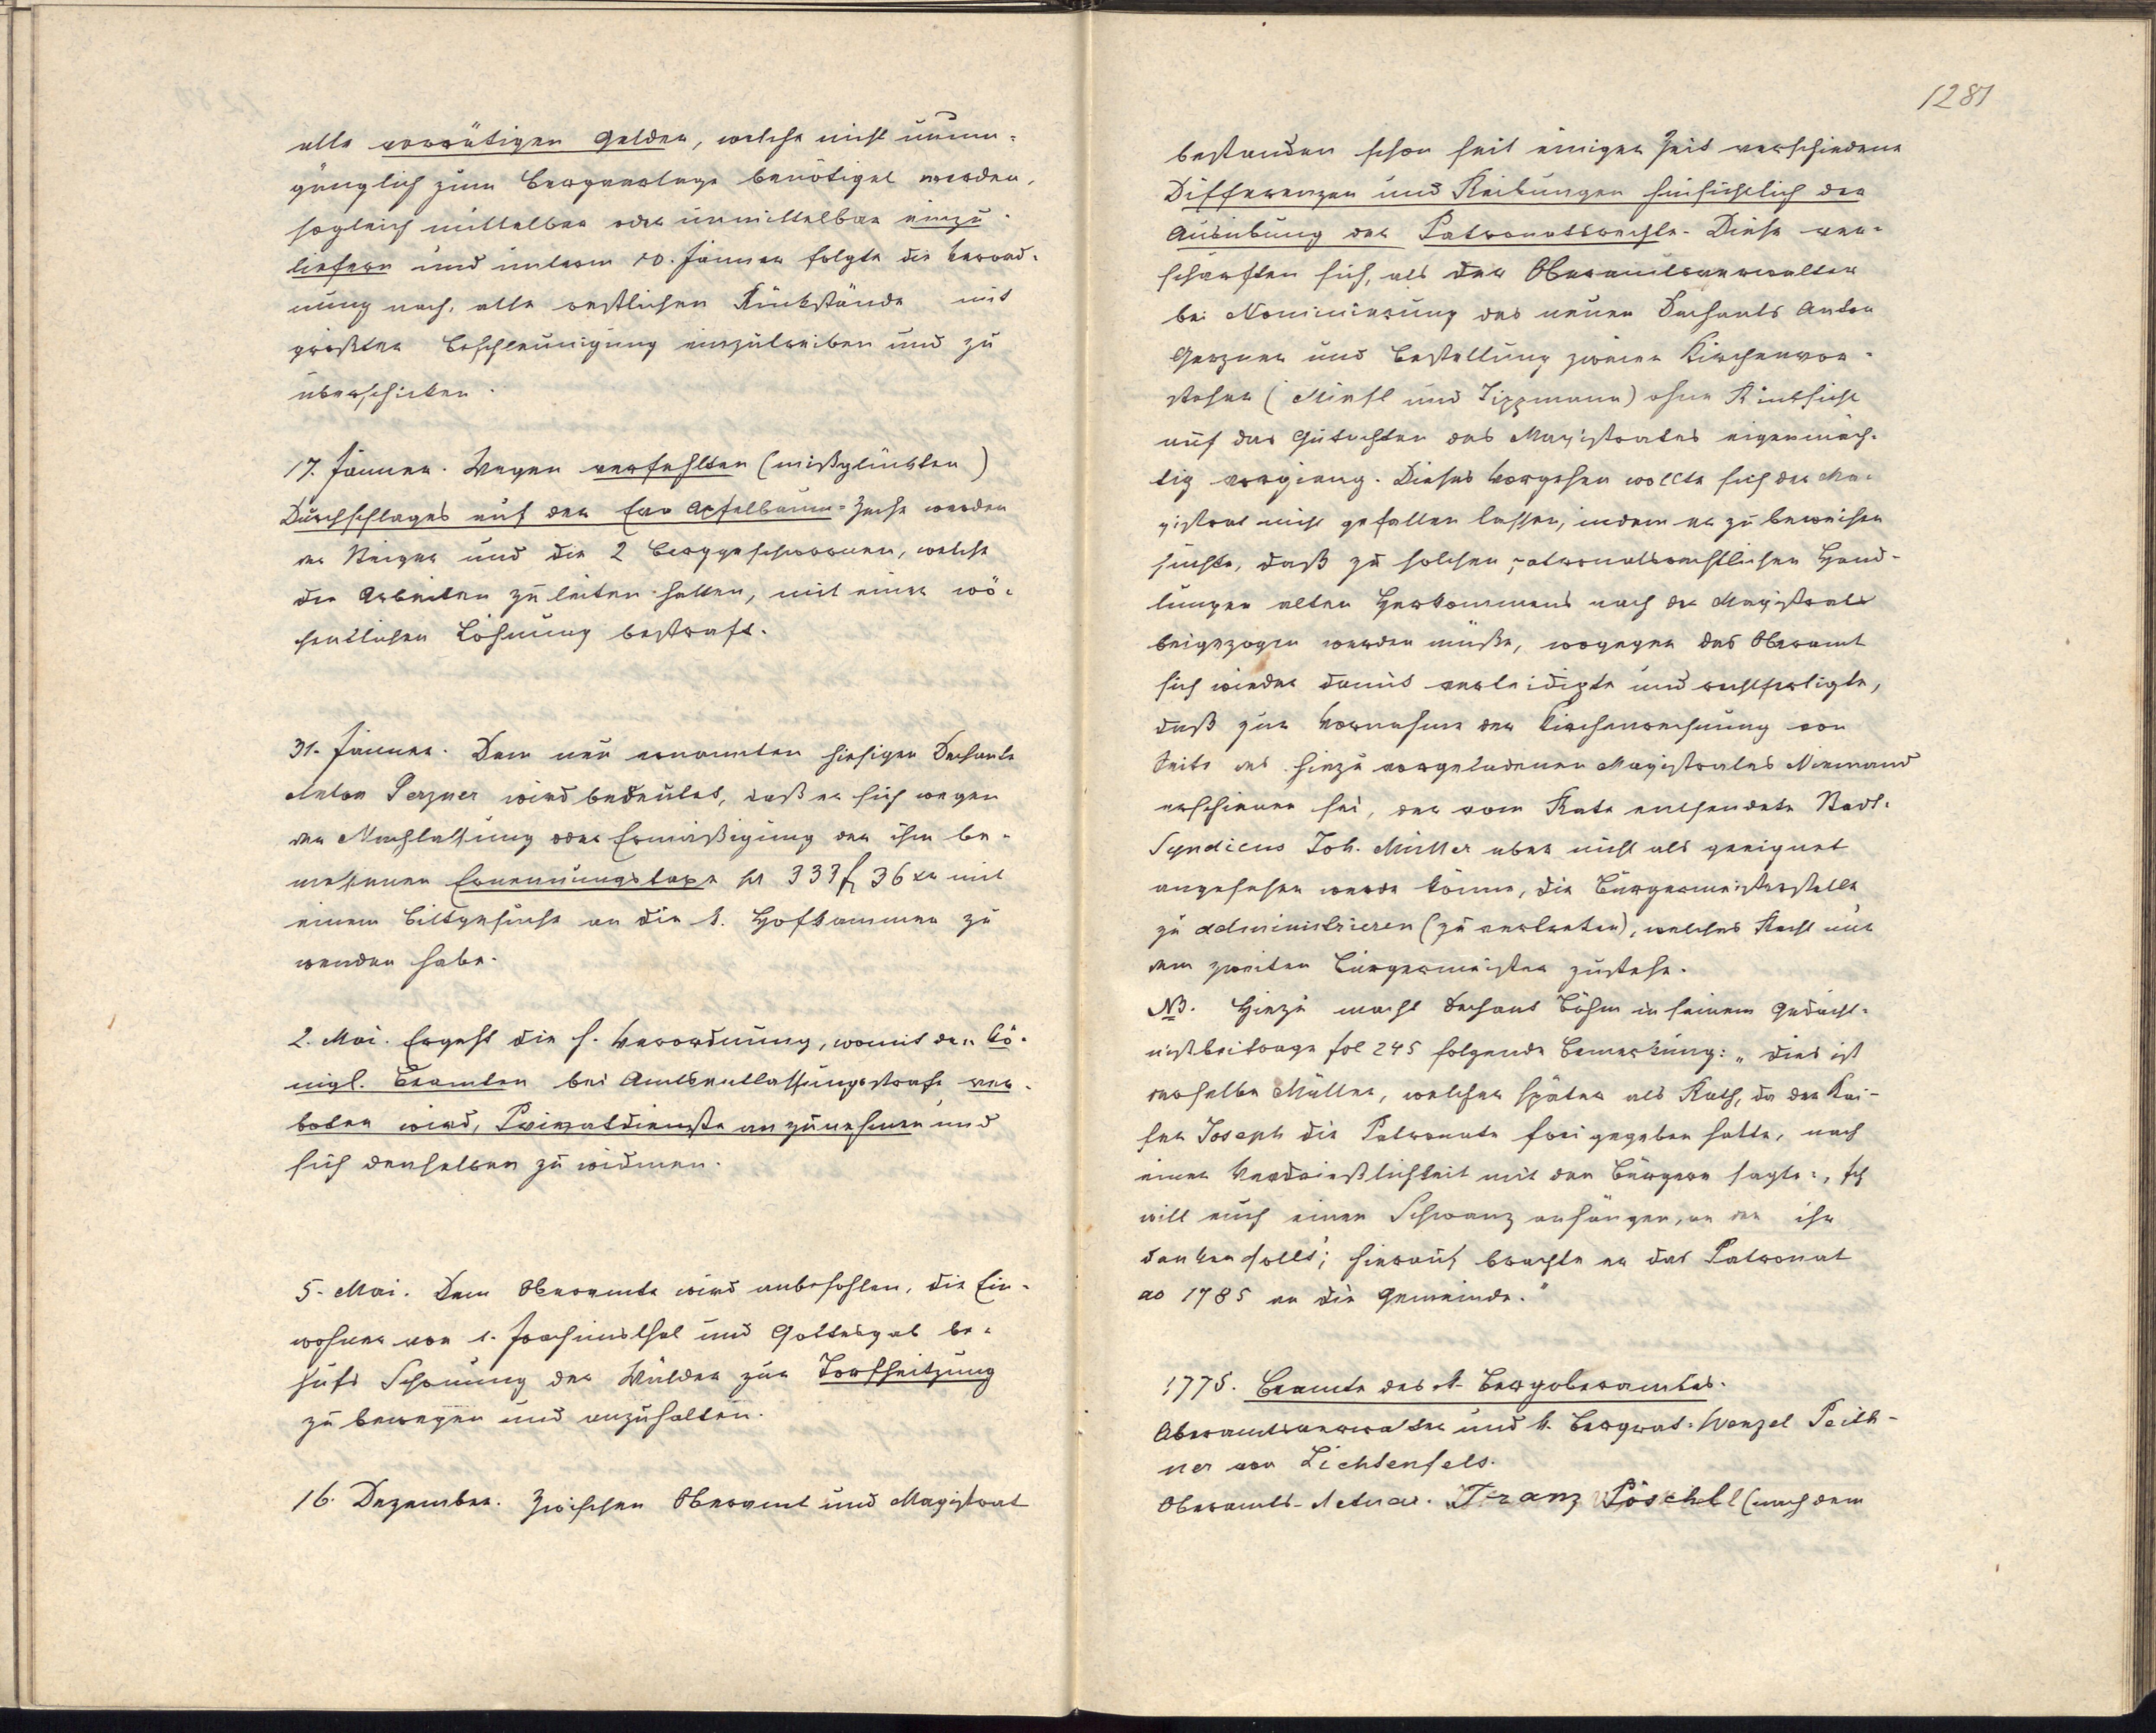 alle vorrätigen Gelder, welche nicht unum-
gänglich zum Bergverlage benötiget werden,
sogleich mittelbar oder unmittelbar einzu-
liefern und unterm 10. Jänner folgte die Verord-
nung nach, alle restlichen Rückstände mit
größter Beschleunigung einzutreiben und zu
überschicken.
17. Jänner. Wegen verfehlten (mißglückten)
Durchschlages auf der Eva Apfelbaum-Zeche werden
der Steiger und die 2 Berggeschwornen, welche
die Arbeiten zu leiten hatten, mit einer wö-
chentlichen Löhnung bestraft.
31. Jänner. Dem neu ernannten hiesigen Dechante
Anton Perzner wird bedeutet, daß er sich wegen
der Nachlassung oder Ermäßigung der ihm be-
messenen Ernennungstaxe pr 333 f 36 xr mit
einem Bittgesuche an die k. Hofkammer zu
wenden habe.
2. Mai. Ergeht die h. Verordnung, womit den kö-
nigl. Beamten bei Amtsentlassungsstrafe ver-
boten wird, Privatdienste anzunehmen und
sich denselben zu widmen.
5. Mai. Dem Oberamte wird anbefohlen, die Ein-
wohner von S. Joachimsthal und Gottesgab be-
hufs Schonung der Wälder zur Torfheitzung
zu bewegen und anzuhalten.
16. Dezember. Zwischen Oberamt und Magistrat
1281
bestanden schon seit einiger Zeit verschiedene
Differenzen und Reibungen hinsichtlich der
Ausübung der Patronatsrechte. Diese ver-
schärften sich, als der Oberamtsverwalter
bei Nominierung des neuen Dechants Anton
Gerzner und Bestellung zweier Kirchenvor-
steher (Miesl und Tippmann) ohne Rücksicht
auf das Gutachten des Magistrates eigenmäch-
tig vorgieng. Dieses Vorgehen wollte sich der Ma-
gistrat nicht gefallen lassen, indem er zu beweisen
suchte, daß zu solchen patronatsrechtlichen Hand-
lungen alten Herkommens nach der Magistrat
beigezogen werden müße, wogegen das Oberamt
sich wieder damit verteidigte und rechtfertigte,
daß zur Vornahme der Kirchenrechnung von
Seite des hiezu vorgeladenen Magistrates Niemand
erschienen sei, der vom Rate entsendete Stadt-
Syndicus Joh. Müller aber nicht als geeignet
angesehen werde könne, die Bürgermeisterstelle
zu administrieren (zu vertreten), welches Recht nur
dem zweiten Bürgermeister zustehe.
NB. Hiezu macht Dechant Böhm in seinem Gedächt-
nißbeitrage fol 245 folgende Bemerkung: „Dies ist
derselbe Müller, welcher später als Rath, da der Kai-
ser Joseph die Patronate freigegeben hatte, nach
einer Verdrießlichkeit mit den Bürgern sagte: „Ich
will euch einen Schwanz anhängen, an den ihr
denken sollt'; hierauf brachte er das Patronat
ao 1785 an die Gemeinde.“
1775. Beamte des k. Bergoberamtes.
Oberamtsverwalter und k. Bergrat: Wenzel Peith-
ner von Lichtenfels.
Oberamts-Actuar. Franz Pöschl (nach dem